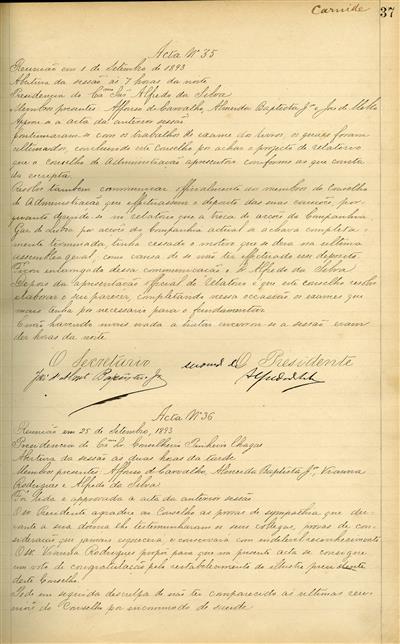 Carnide 37
Acta Nº 35
Reunião em 1 de Setembro de 1893
Abertura da sessão ás 7 horas da noite
Presidencia do Exmo Snr Alfredo da Silva
Membros presentes: Affonso de Carvalho, Almeida Baptista Jor e José de Mello
Approvou a acta da anterior sessão
Continuaram-se com os trabalhos de exame dos livros, os quaes foram
ultimados, concluindo este Conselho por achar o projecto de relatorio
que o conselho de Administração apresentou conforme ao que consta
da escripta
Resolveu tambem communicar officialmente aos membros do Conselho
de Administração que effectuassem o deposito das suas cauções, por
quanto dizendo-se no relatorio que a troca de acções da Companhia
Gaz de Lisboa por acções da Companhia actual se achava completa
mente terminada, tinha cessado o motivo que se dera na ultima
assemblea geral, como causa de se não ter effectuado esse deposito
Ficou encarregado dessa communicação o Sr Alfredo da Silva
Depois da apresentação official do relatorio é que este conselho resolveu
elaborar o seu parecer, completando nessa occasião os exames que
mais tenha por necessario para o fundamentar
E não havendo mais nada a tratar encerrou-se a sessão eram
dez horas da noite
O Secretario O Presidente
Baptista Jr
Acta Nº 36
Reunião em 25 de Setembro, 1893
Presidencia do Exmo Sr. Conselheiro Pinheiro Chagas
Abertura da sessão ás duas horas da tarde
Membros presentes: Affonso de Carvalho, Almeida Baptista Jor, Vianna
Rodrigues e Alfredo da Silva
Foi lida e approvada a acta da anterior sessão
O Sr. Presidente agradeceu ao Conselho as provas de sympathia que du-
rante a sua doença lhe testemunharam os seus collegas, provas de con-
sideração que jamais esquecerá, e conservará com indelevel reconhecimento
O Sr. Vianna Rodrigues propoz para que na presente acta se consigne
um voto de congratulação pelo restabelecimento do illustre presidente
deste Conselho
Pede em seguida desculpa de não ter comparecido ás ultimas reu-
niões do Conselho por incommodo de saude